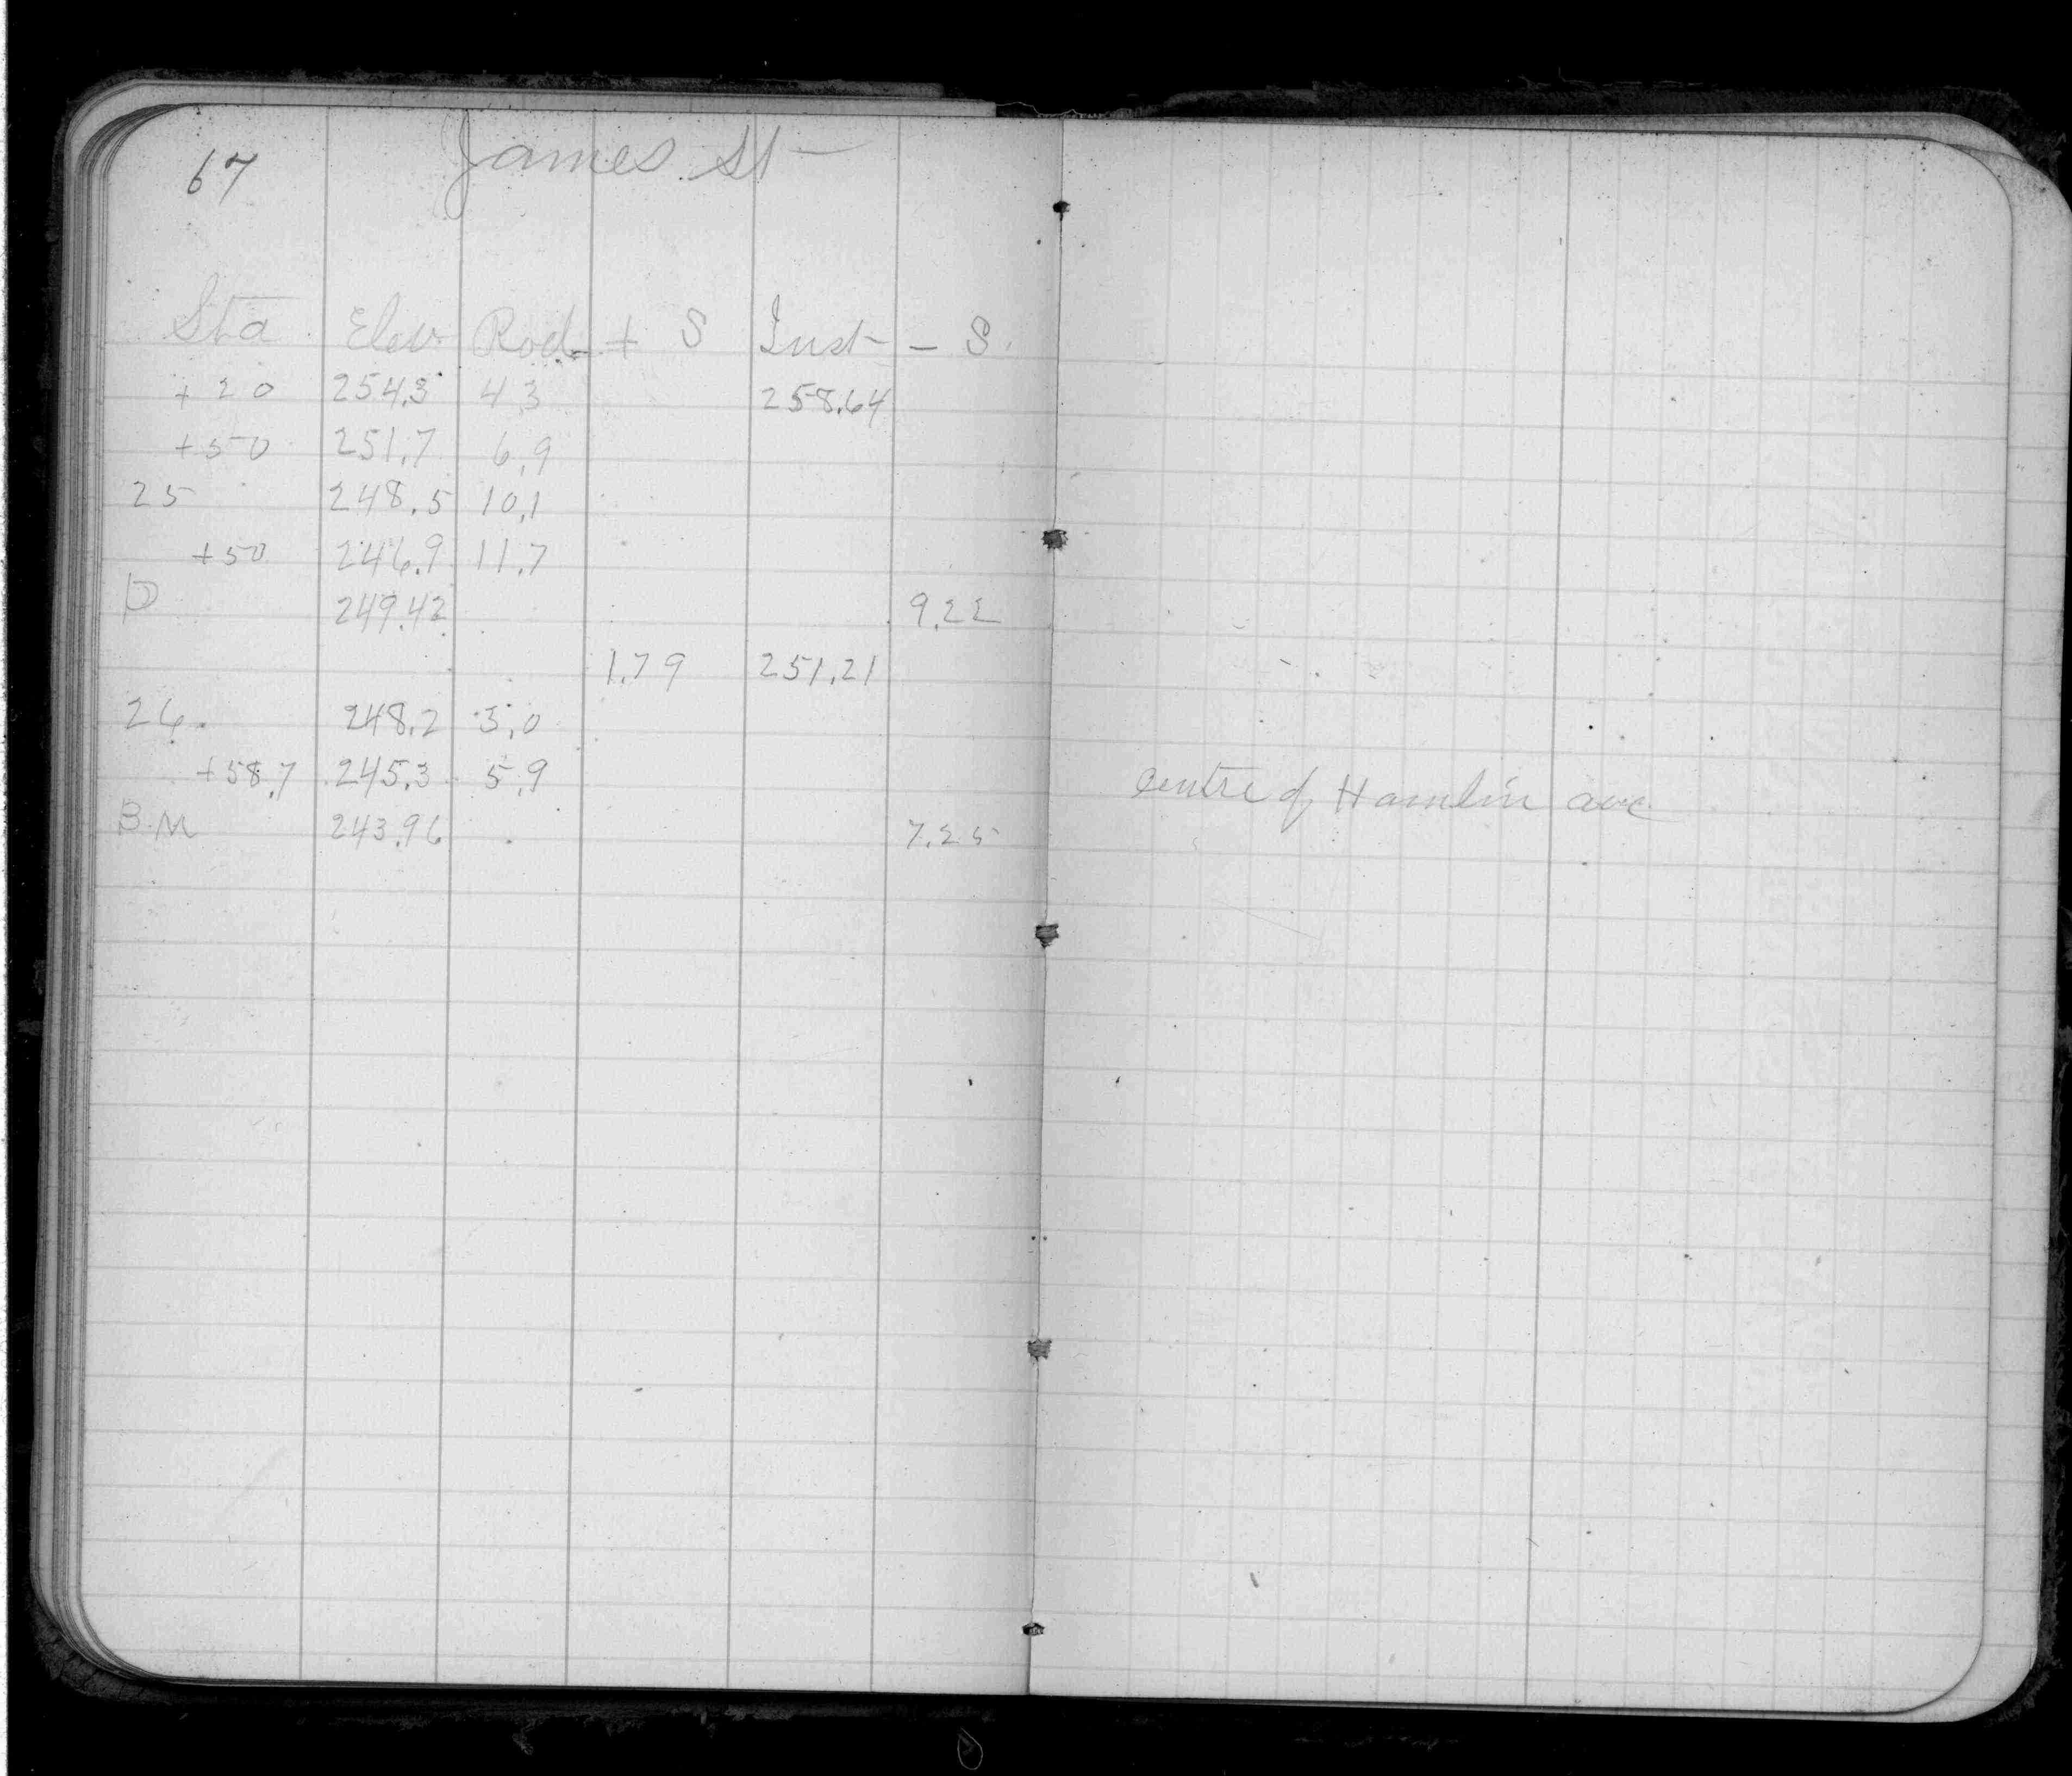 67 James St
Sta Elev Rod + S Inst - S.
+20 254.3 4.3 258.64
+50 251.7 6.9
25 248.5 10.1
+50 246.9 11.7
249.42 9.22
1.79 251.21
26. 248.2 3.0
+58.7 245.3 5.9 centre of Hamlin ave
B.M 243.96 7.25